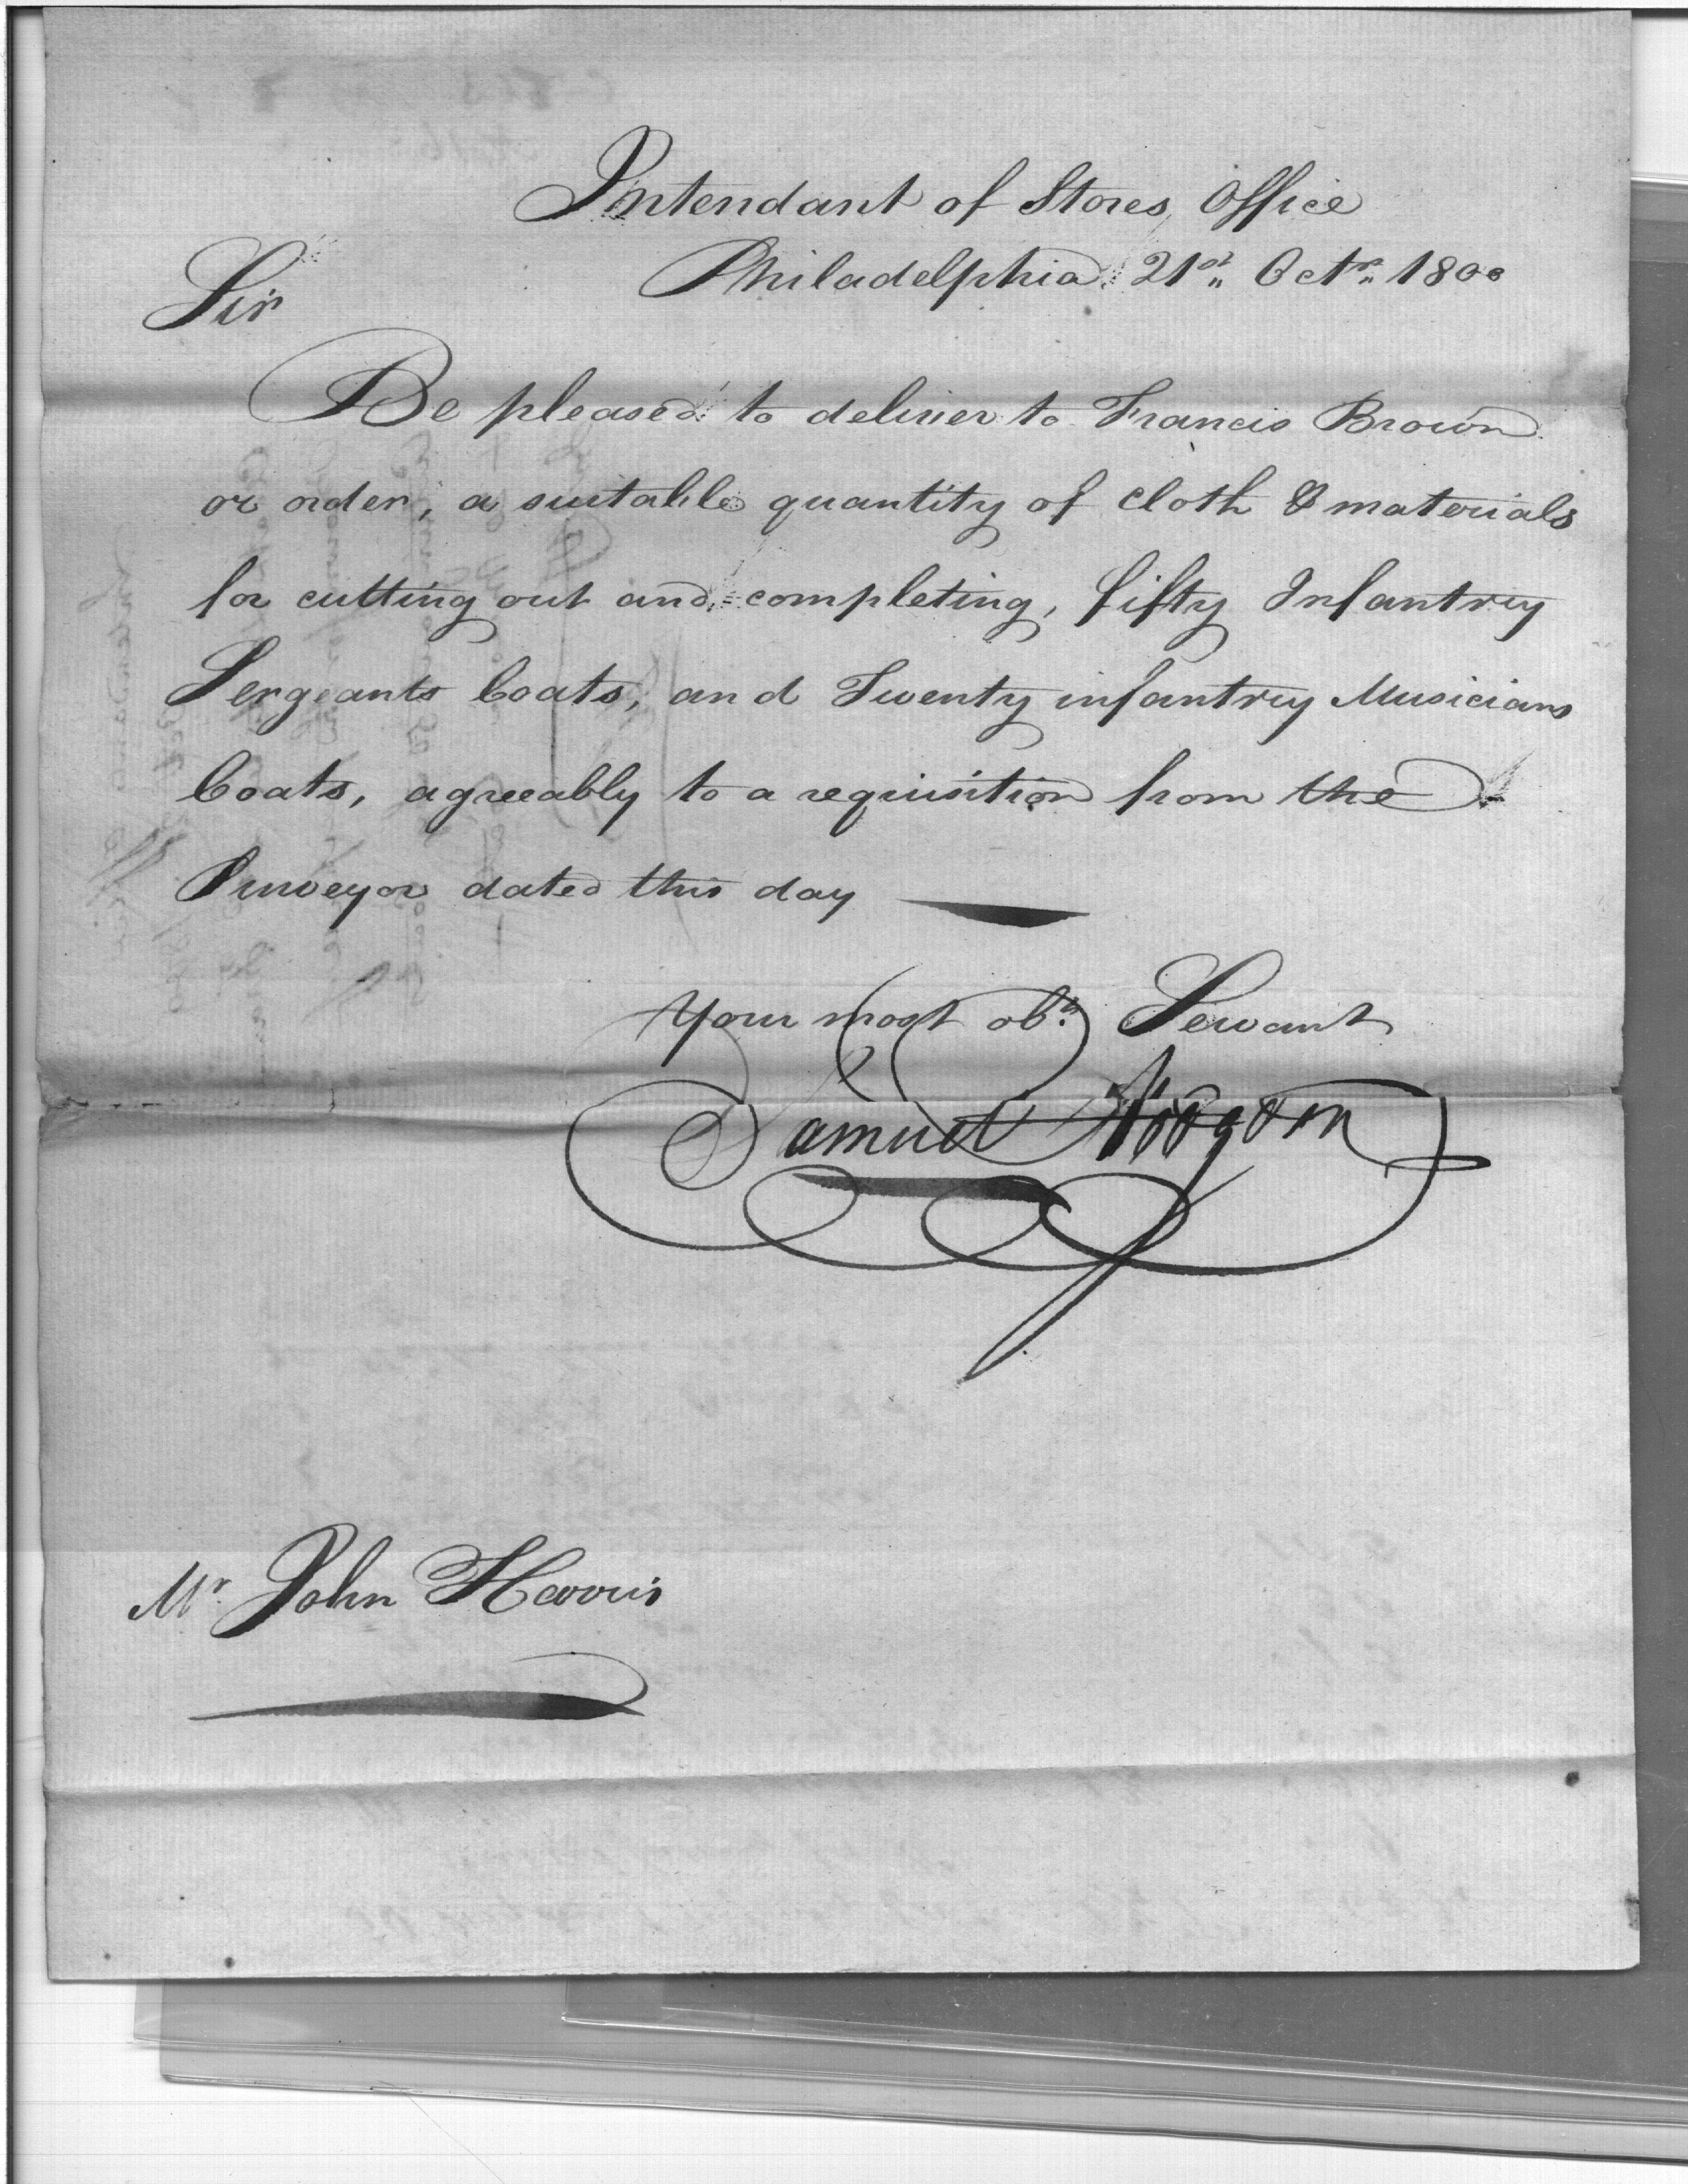 Intendant of Stores Office
Philadelphia 21st Octr 1800
Sir
Be pleased to deliver to Francis Brown
or order, a suitable quantity of cloth & materials
for cutting out and completing, fifty Infantry
Sergeants Coats, and Twenty infantry Musicians
Coats, agreeably to a requisition from the
Purveyor dated this day
Your most obt. Servant
Samuel Hodgdon
Mr. John Harris